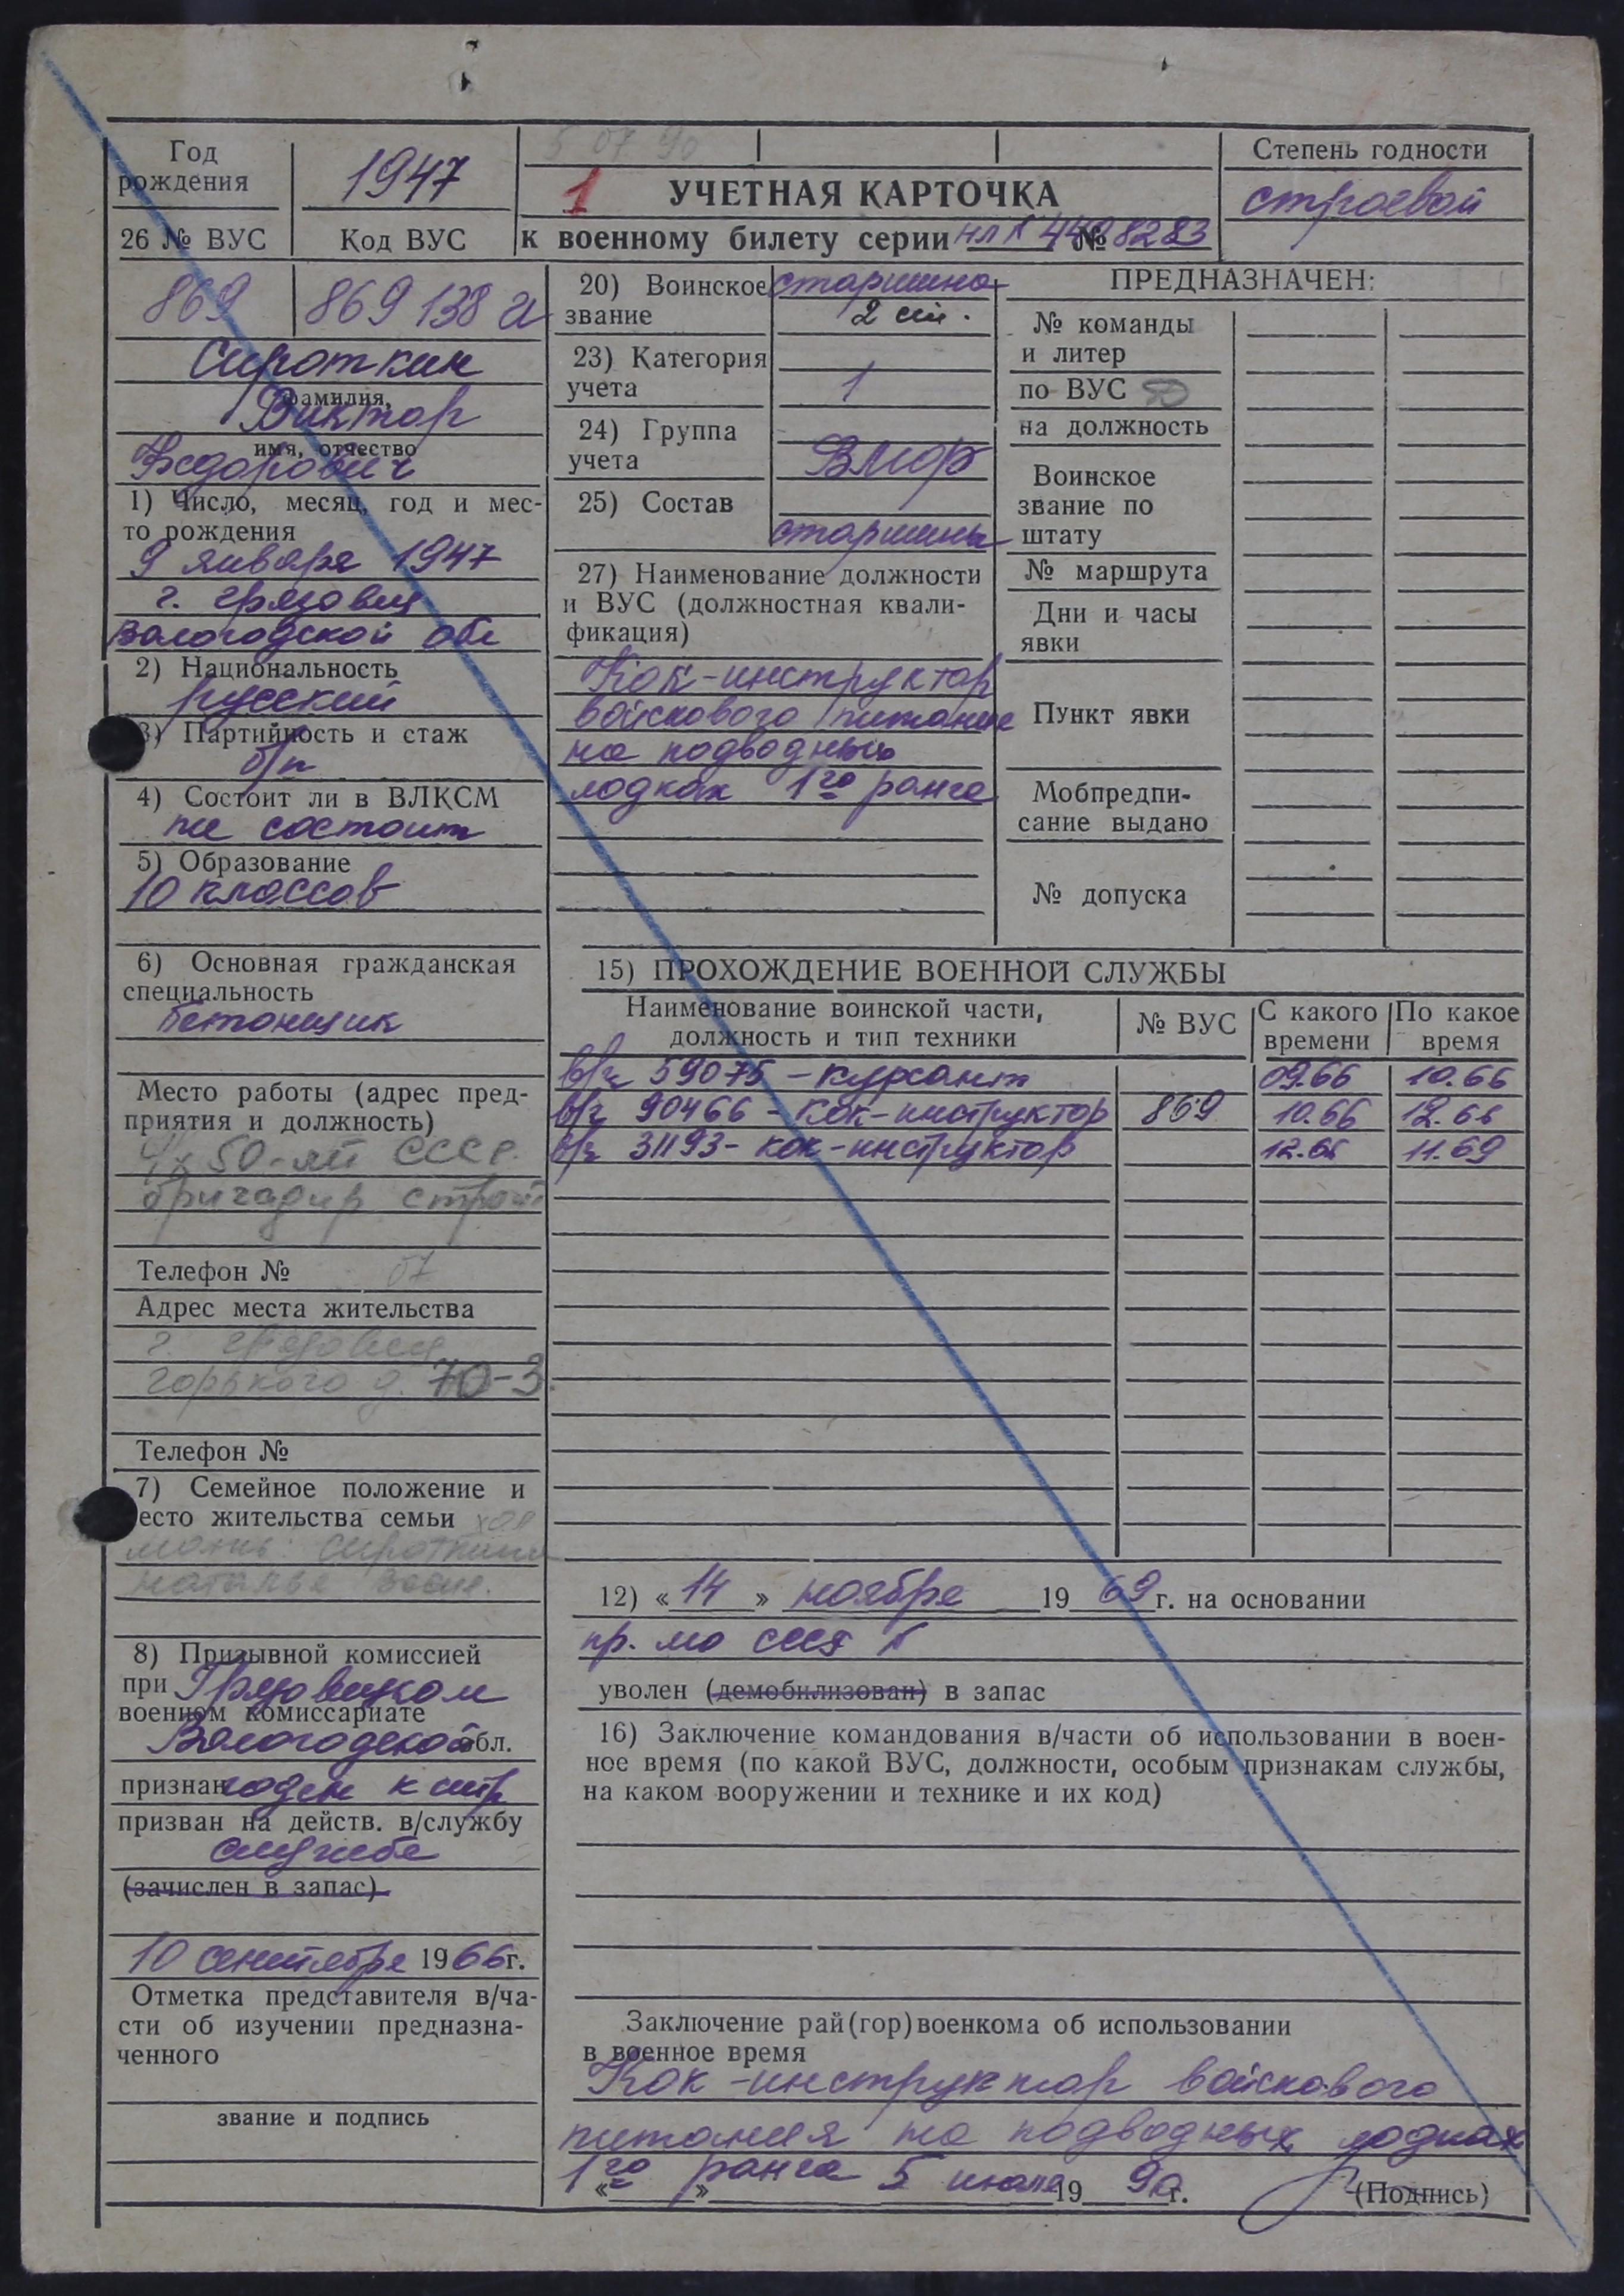 5 07 90
Год рождения
1947
1
УЧЕТНАЯ КАРТОЧКА
к военному билету серии НЛ № 8283
Степень годности
строевой
26 № ВУС
Код ВУС
869
869 138 а
Сироткин
фамилия,
Виктор
имя, отчество
Федорович
1) Число, месяц, год и мес-
то рождения
9 января 1947
г. Грязовец
Вологодской обл
2) Национальность
русский
3) Партийность и стаж
б/п
4) Состоит ли в ВЛКСМ
не состоит
5) Образование
10 классов
6) Основная гражданская
специальность
бетонщик
Место работы (адрес пред-
приятия и должность)
50-ти СССР.
бригадир строит
Телефон № 67
Адрес места жительства
г. Грязовец
Горького д. 70-3.
Телефон №
7) Семейное положение и
есто жительства семьи хол
мать: Сироткина
Наталья
8) Призывной комиссией
при Грязовецком
военном комиссариате
Вологодской обл.
признан годен к стр
призван на действ. в/службу
службе
(зачислен в запас)
10 сентября 1966г.
Отметка представителя в/ча-
сти об изучении предназна-
ченного
звание и подпись
20) Воинское звание
старшина
2 ст.
23) Категория учета
1
24) Группа учета
ВМФ
25) Состав
старшины
27) Наименование должности
и ВУС (должностная квали-
фикация)
Кок-инструктор
войскового питания
на подводных
лодках 1го ранга
ПРЕДНАЗНАЧЕН:
№ команды
и литер
по ВУС
на должность
Воинское
звание по
штату
№ маршрута
Дни и часы
явки
Пункт явки
Мобпредпи-
сание выдано
№ допуска
15) ПРОХОЖДЕНИЕ ВОЕННОЙ СЛУЖБЫ
Наименование воинской части,
должность и тип техники
№ ВУС
С какого
времени
По какое
время
в/ч 59075 - курсант 09.66 10.66
в/ч 90466 - кок-инструктор 869 10.66 12.66
в/ч 31193 - кок-инструктор 12.66 11.69
12) «14» ноября 1969г. на основании
пр. МО СССР №
уволен (демобилизован) в запас
16) Заключение командования в/части об использовании в воен-
ное время (по какой ВУС, должности, особым признакам службы,
на каком вооружении и технике и их код)
Заключение рай(гор)военкома об использовании
в военное время
Кок-инструктор войскового
питания на подводных лодках
1го ранга 5 июля 1990 г.
(Подпись)